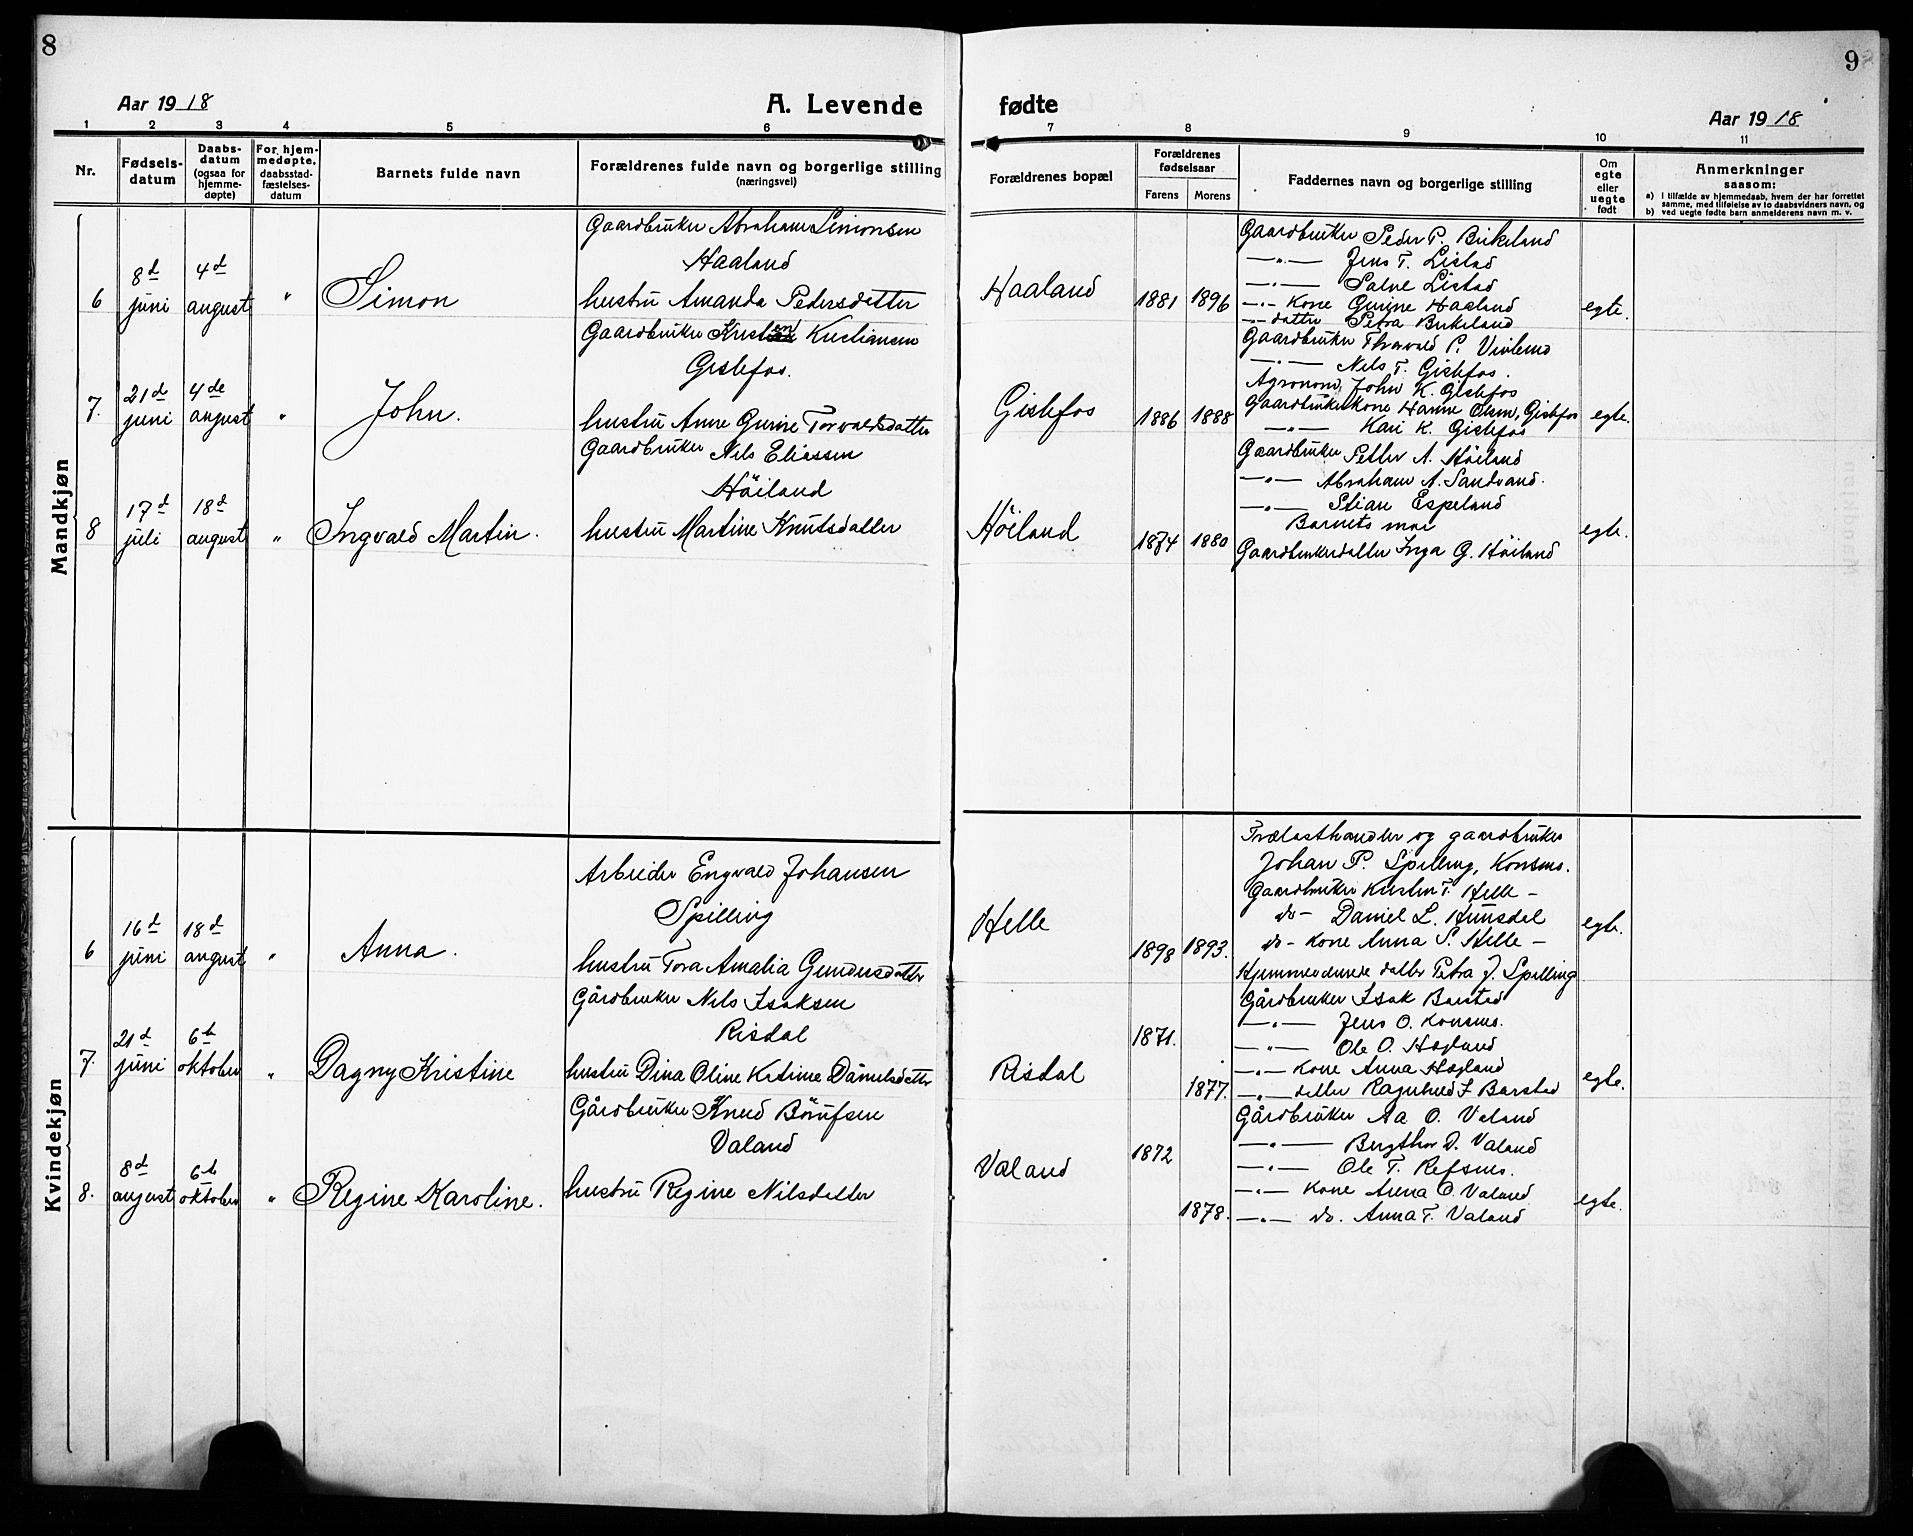 8
Aar 1918
A. Levende
1 2 3 4 5 6
Nr.
Fødsels-
datum
Daabs-
datum
(ogsaa for
hjemme-
døpte)
For hjem-
medøpte,
daabsstad-
fæstelses-
datum
Barnets fulde navn
Forældrenes fulde navn og borgerlige stilling
(næringsvei)
Mandkjøn
6
8d
juni
4d
august
"
Simon
Gaardbruker Abraham Simonsen
Haaland
hustru Amanda Pedersdatter
7.
21d
juni
4de
august
"
John.
Gaardbruker Kristen Kristiansen
Gislefos.
hustru Anne Gurine Torvaldsdatter
8
17d
juli
18d
august
"
Ingvald Martin.
Gaardbruker Nils Eliassen
Höiland
hustru Martine Knutsdatter
Kvindekjøn
6
16d
juni
18d
august
"
Anna.
Arbeider Engvald Johansen
Spilling
hustru Tora Amalia Gundersdatter
7.
21d
juni
6te
oktober
"
Dagny Kristine
Gårdbruker Nils Isaksen
Risdal
hustru Dina Oline Katrine Danielsdatter
8.
8d
august
6te
oktober
"
Regine Karoline.
Gårdbruker Knud
Valand
hustru Regine Nilsdatter
9
fødte
Aar 1918
7 8 9 10 11
Forældrenes bopæl
Forældrenes
fødselsaar
Farens Morens
Faddernes navn og borgerlige stilling
Om
egte
eller
uegte
født
Anmerkninger
saasom:
a) I tilfælde av hjemmedaab, hvem der har forrettet
samme, med tilføielse av to daabsvidners navn, og
b) ved uegte fødte barn anmelderens navn m. v.
Haaland
1881 1896
Gaardbruker Peder P. Birkeland
—"— Jens T. Listad
—"— Salve Listad
—"— Kone Gurine Haaland
—"— datter Petra Birkeland
egte.
Gislefos
1886 1888
Gaardbruker Thorvald P. Vivlemo
—"— Nils T. Gislefos.
Agronom John K. Gislefos
Gaardbrukerkone Hanne Olsen, Gislefos
—"— Kari K. Gislefos
egte.
Höiland
1874 1880
Gaardbruker Petter A. Höiland
—"— Abraham A. Sandvand.
—"— Stian Espeland
Barnets mor
Gaardbrukerdatter Inga G. Höiland
egte.
Helle
1898 1893.
Trælasthandler og gaardbruker
Johan P. Spilling, Konsmo.
Gaardbruker Kristen T. Helle —
do — Daniel L. Hunsdal
do — Kone Anna S. Helle —
Hjemmeværende datter Petra J. Spilling
egte.
Risdal
1871.
1877.
Gårdbruker Isak Barstad
—"— Jens O. Konsmo.
—"— Ole O. Høgland
—"— Kone Anna Høgland
—"— datter Ragnhild I Barstad
egte.
Valand
1872
1878.
Gårdbruker Aa O. Valand
—"— Bergthor D. Valand
—"— Ole T. Refsnes.
—"— Kone Anna O. Valand
—"— do. Anna T. Valand
egte.